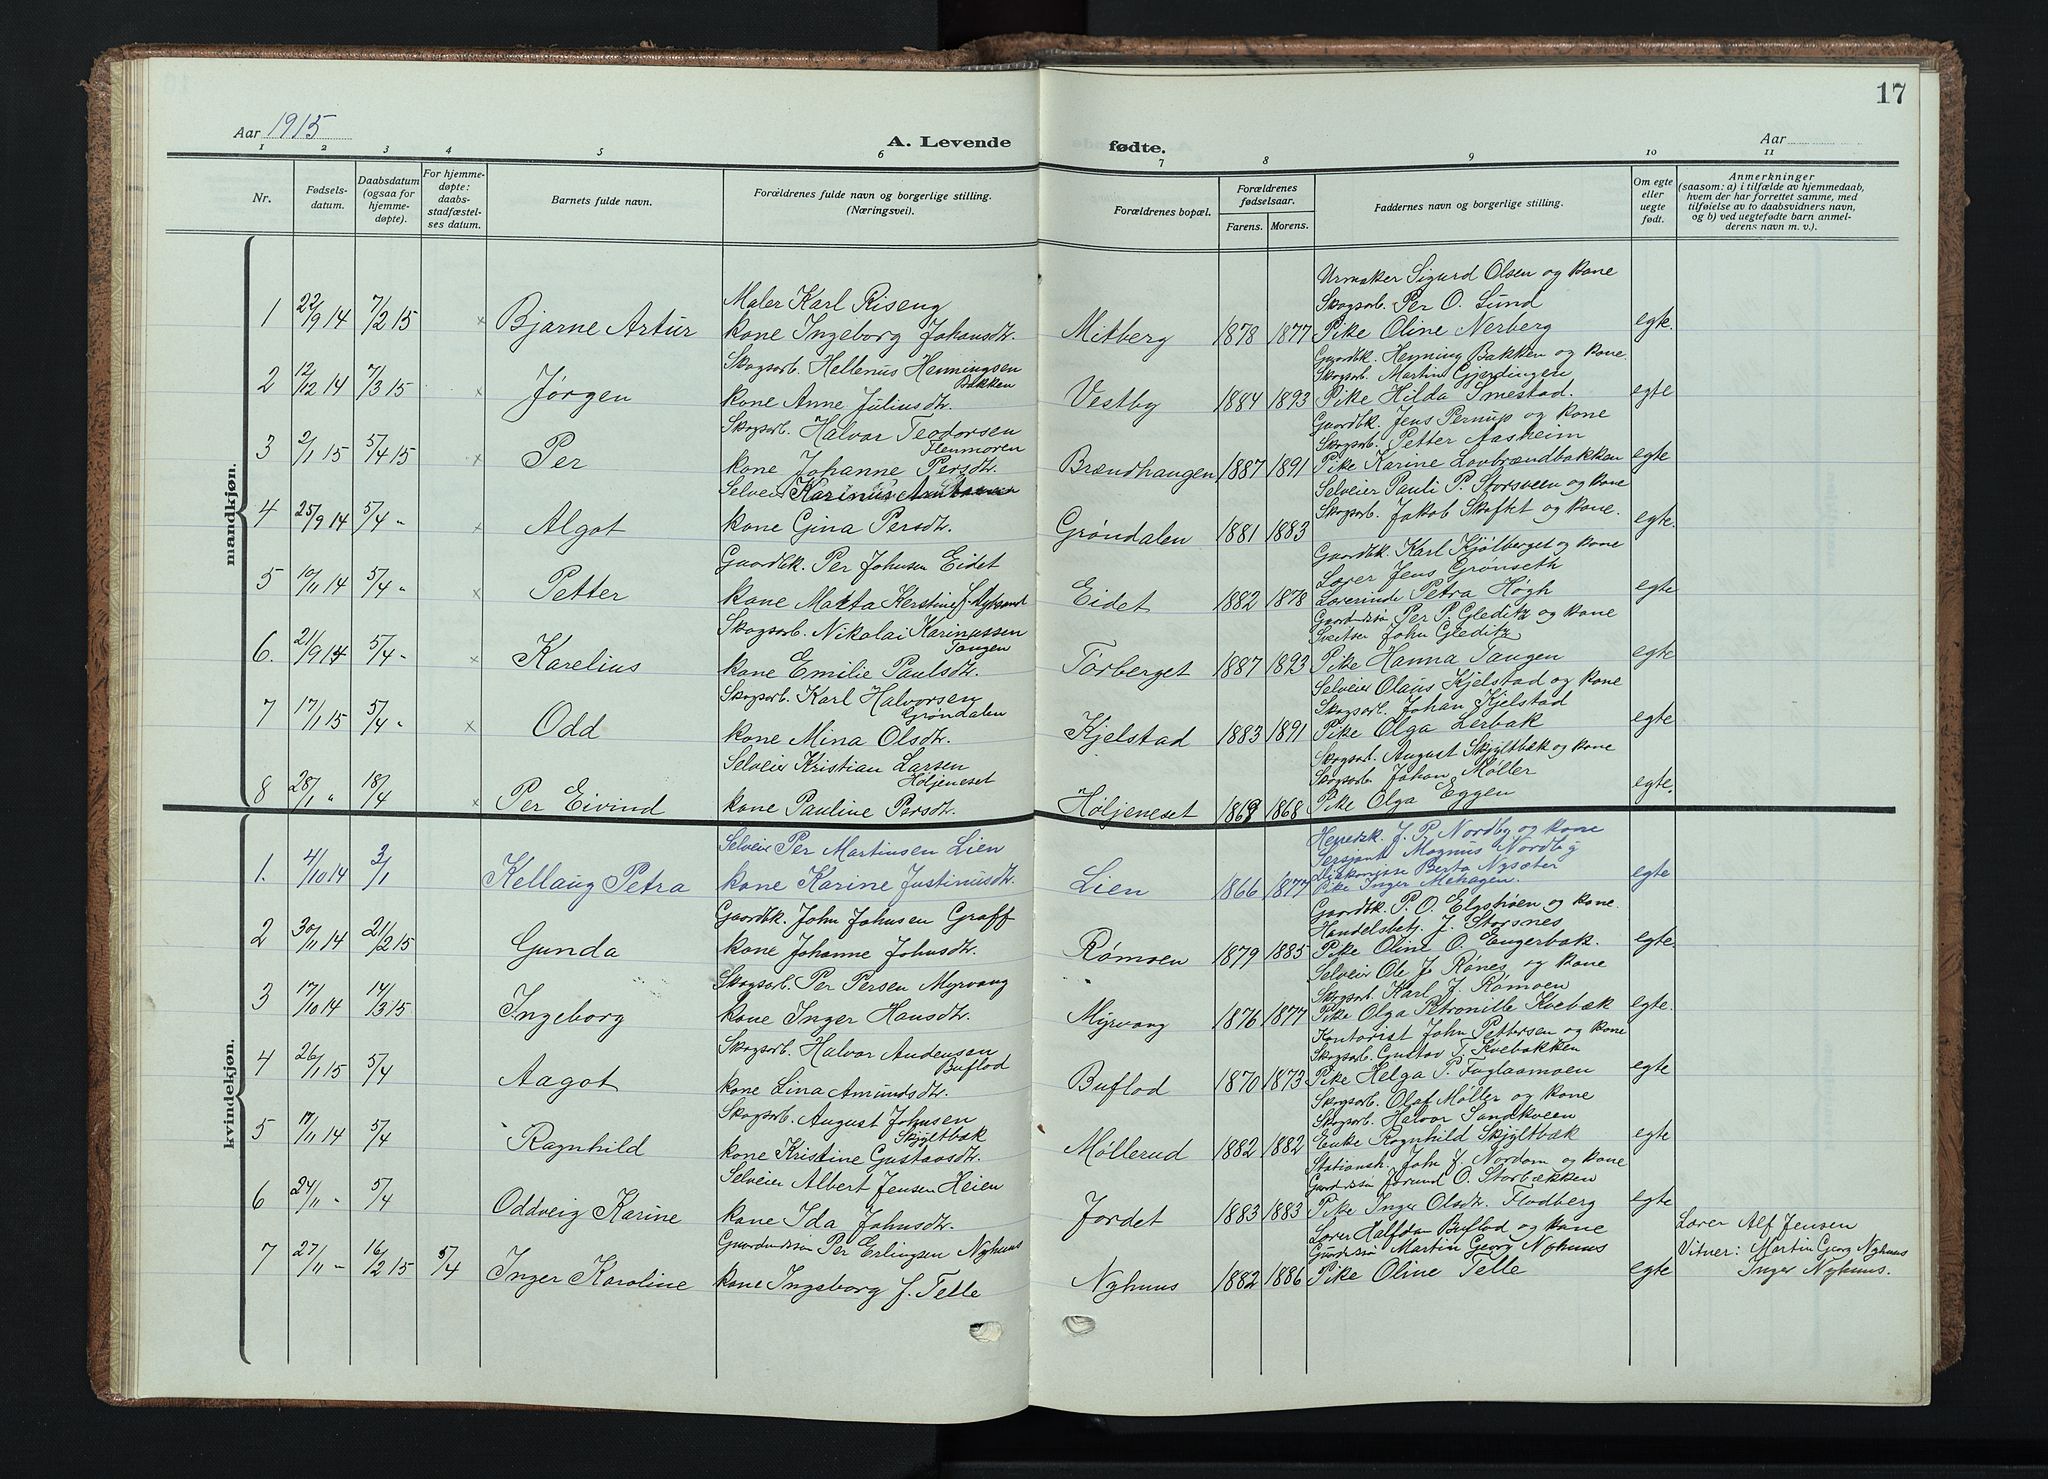 17
Aar 1915
A. Levende fødte.
Aar
1 2 3 4 5 6 7 8 9 10 11
Nr.
Fødsels-
datum.
Daabsdatum
(ogsaa for
hjemme-
døpte).
For hjemme-
døpte:
daabs-
stadfæstel-
ses datum.
Barnets fulde navn.
Forældrenes fulde navn og borgerlige stilling.
(Næringsvei).
Forældrenes bopæl.
Forældrenes
fødselsaar.
Farens. Morens.
Faddernes navn og borgerlige stilling.
Om egte
eller
uegte
født.
Anmerkninger
(saasom: a) i tilfælde av hjemmedaab,
hvem der har forrettet samme, med
tilføielse av to daabsvidners navn,
og b) ved uegtefødte barn anmel-
derens navn m. v.).
mandkjøn.
Urmaker Sigurd Olsen og kone
Maler Karl Riseng
Skogsarb. Per O. Lund
1 22/9 14 7/2 15 × Bjarne Artur kone Ingeborg Johansdtr. Mitberg 1878 1877 Pike Oline Nerberg egte.
Gaardbk. Henning Bakken og kone
Skogsarb. Hellenus Henningsen
Bakken
Skogsarb. Martin Gjærdingen
2 12/12 14 7/3 15 × Jørgen kone Anne Juliusdtr. Vestby 1884 1893 Pike Hilda Smestad. egte
Gaardbk. Jens Pernup og kone
Skogsarb. Halvor Teodorsen
Flenmoren
Skogsarb. Petter Aasheim
3 2/1 15 5/4 15 × Per kone Johanne Persdtr. Brændhaugen 1887 1891 Pike Karine Lovbrændbakken egte
Selveier Pauli P. Storsveen og kone
Selveier Karinus
Skogsarb. Jakob Skaftet og kone.
4 25/9 14 5/4 " × Algot kone Gina Persdtr. Grøndalen 1881 1883 egte.
Gaardbk. Karl Kjølberget og kone
Gaardbk. Per Johnsen Eidet
Lærer Jens Grønseth
5 10/11 14 5/4 " × Petter kone Marta Kerstine J. Eidet 1882 1878 Lærerinde Petra Høgh egte
Gaardmdssøn Per P. Gleditz og kone
Skogsarb. Nikolai Karinussen
Tangen
Sveitser John Gleditz
6. 21/9 14 5/4 - × Karelius kone Emilie Paulsdtr. Tørberget 1887 1893 Pike Hanna Tangen egte
Selveier Olaus Kjelstad og kone
Skogsarb. Karl Halvorsen
Grøndalen
Skogsarb. Johan Kjelstad
7 17/1 15 5/4 " × Odd kone Mina Olsdtr. Kjelstad 1883 1891 Pike Olga Lerbak egte
Skogsarb. August Skjyltbæk og kone
Selveier Kristian Larsen
Høljeneset
Skogsarb. Johan Møller
8 28/1 " 18/4 × Per Eivind kone Pauline Persdtr. Høljeneset 1868 Pike Olga Eggen egte.
kvindekjøn.
Herredsk. J. P. Nordby og kone
Selveier Per Martinsen Lien
Sersjant Magnus Nordby
Berta Nysæter
1. 4/10 14 3/1 Kellaug Petra kone Karine Justinusdtr. Lien 1866 1877 Pike Inger Mehagen. egte
Gaardbk. P. O. Elgshøen og kone.
Gaardbk. John Johnsen Graff
Handelsbetj. J. Storsnes
2 30/11 14 21/2 15 Gunda kone Johanne Johnsdtr. Rømoen 1879 1885 Pike Oline O. Engerbak. egte
Selveier Ole J. Rønes og kone
Skogsarb. Per Persen Myrvang
Skogsarb. Karl J. Rømoen
3 17/10 14 14/3 15 Ingeborg kone Inger Hansdtr. Myrvang 1876 1877 Pike Olga Petronille Kvebæk egte.
Kontorist John Pettersen og kone
Skogsarb. Halvor Andensen
Buflod
Skogsarb. Gustav T. Kvebakken
4 26/1 15 5/4 Aagot kone Lina Amundsdtr. Buflod 1870 1873 Pike Helga P. Fuglaamoen egte
Skogsarb. Olaf Møller og kone
Skogsarb. August Johnsen
Skjyltbæk
Skogsarb. Halvor Sandkveen
5 17/11 14 5/4 Ragnhild kone Kristine Gustavsdtr. Møllerud 1882 1882 Enke Ragnhild Skjyltbæk egte
Stationsk. John J. Nordam og kone
Selveier Albert Jensen Heien
Gaardmdssøn Jørund O. Storbækken
6 24/11 - 5/4 Oddveig Karine kone Ida Johnsdtr. Jordet 1883 1883 Pike Inger Olsdtr. Flodberg egte
Lærer Halfdan Buflod og kone
Lærer Alf Jensen
Gaardmdssøn Per Erlingsen Nyhuus
Gaardmdssøn Martin Georg Nyhuus
Vitner: Martin Georg Nyhuus
7 27/11 - 16/2 15 5/4 Inger Karoline kone Ingeborg J. Telle Nyhuus 1882 1886 Pike Oline Telle egte Inger Nyhuus.